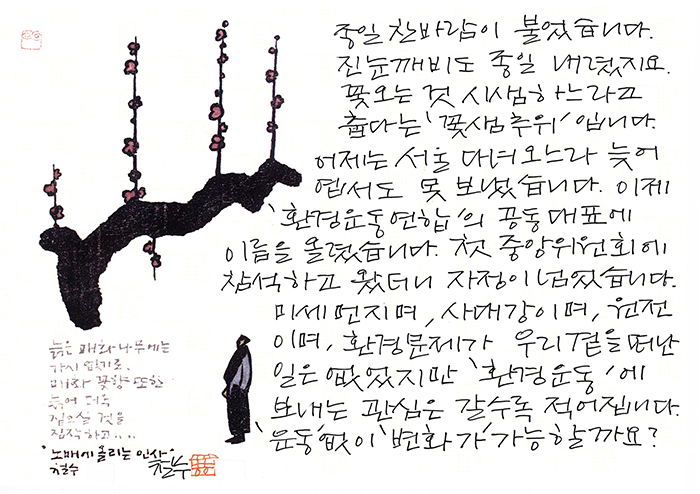 종일 찬바람이 불었습니다.
진눈깨비도 종일 내렸지요.
꽃오는 것 시샘하느라고
춥다는 '꽃샘추위' 입니다.
어제는 서울 다녀오느라 늦어
엽서도 못 보냈습니다. 이제
'환경운동연합'의 공동대표에
이름을 올렸습니다. 첫 중앙위원회에
참석하고 왔더니 자정이 넘었습니다.
미세먼지며, 사대강이며, 원전
이며, 환경문제가 우리 곁을 떠난
일은 없었지만 '환경운동'에
보내는 관심은 갈수록 적어집니다.
'운동'없이 '변화가'가능할까요?
늙은 매화나무에는
가시 없기로,
매화 꽃향 또한
늙어 더욱
깊으실 것을
짐작하고....
"노매에 올리는 인사"
철수
철수